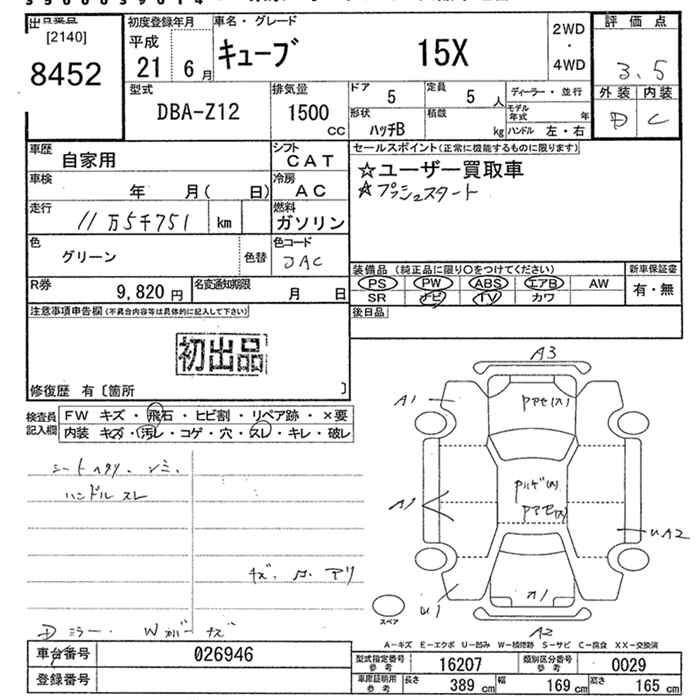 出品番号
[2140]
8452
初度登録年月
平成
21 6月
車名・グレード
キューブ 15X
2WD
・
4WD
評価点
3.5
外装 内装
D C
型式
DBA-Z12
排気量
1500
CC
ドア
5
定員
5 人
形状
ハッチB
積載
kg
ディーラー・並行
モデル年式 年
ハンドル 左・右
車歴
自家用
シフト
C A T
車検
年 月( 日)
冷房
A C
走行
11万5千751 km
燃料
ガソリン
色
グリーン
色替
色コード
JAC
R券
9,820 円
名変通知期限
月 日
セールスポイント(正常に機能するものに限ります)
☆ユーザー買取車
☆プッシュスタート
装備品 (純正品に限り〇をつけてください)
PS PW ABS エアB AW
SR ナビ TV カワ
新車保証書
有・無
後日品
注意事項申告欄(不具合内容等は具体的に記入して下さい)
初出品
修復歴 有〔箇所 〕
検査員記入欄
FW キズ・飛石・ヒビ割・リペア跡・×要
内装 キズ・汚レ・コゲ・穴・スレ・キレ・破レ
シートヘタリ、シミ、
ハンドルスレ
キズ、凹、アリ
Dミラー、Wカバーキズ
A3
A1
A1
UA2
U1
A1
A2
スペア
A-キズ E-エクボ U-凹み W-補修跡 S-サビ C-腐食 XX-交換済
車台番号
026946
登録番号
型式指定番号
参考
16207
類別区分番号
参考
0029
車庫証明用
参考
長さ 389 cm
幅 169 cm
高さ 165 cm